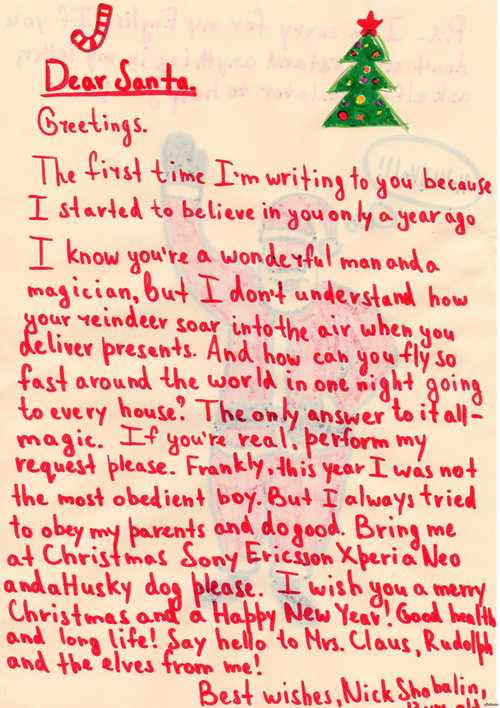 Dear Santa.
Greetings.
The first time I'm writing to you because
I started to believe in you only a year ago
I know you're a wonderful man and a
magician, but I don't understand how
your reindeer soar into the air, when you
deliver presents. And how can you fly so
fast around the world in one night going
to every house? The only answer to it all-
magic. If you're real, perform my
request please. Frankly, this year I was not
the most obedient boy. But I always tried
to obey my parents and do good. Bring me
at Christmas Sony Ericsson Xperia Neo
and a Husky dog please. I wish you a merry
Christmas and a Happy New Year! Good health
and long life! Say hello to Mrs. Claus, Rudolph
and the elves from me!
Best wishes, Nick Shabalin,